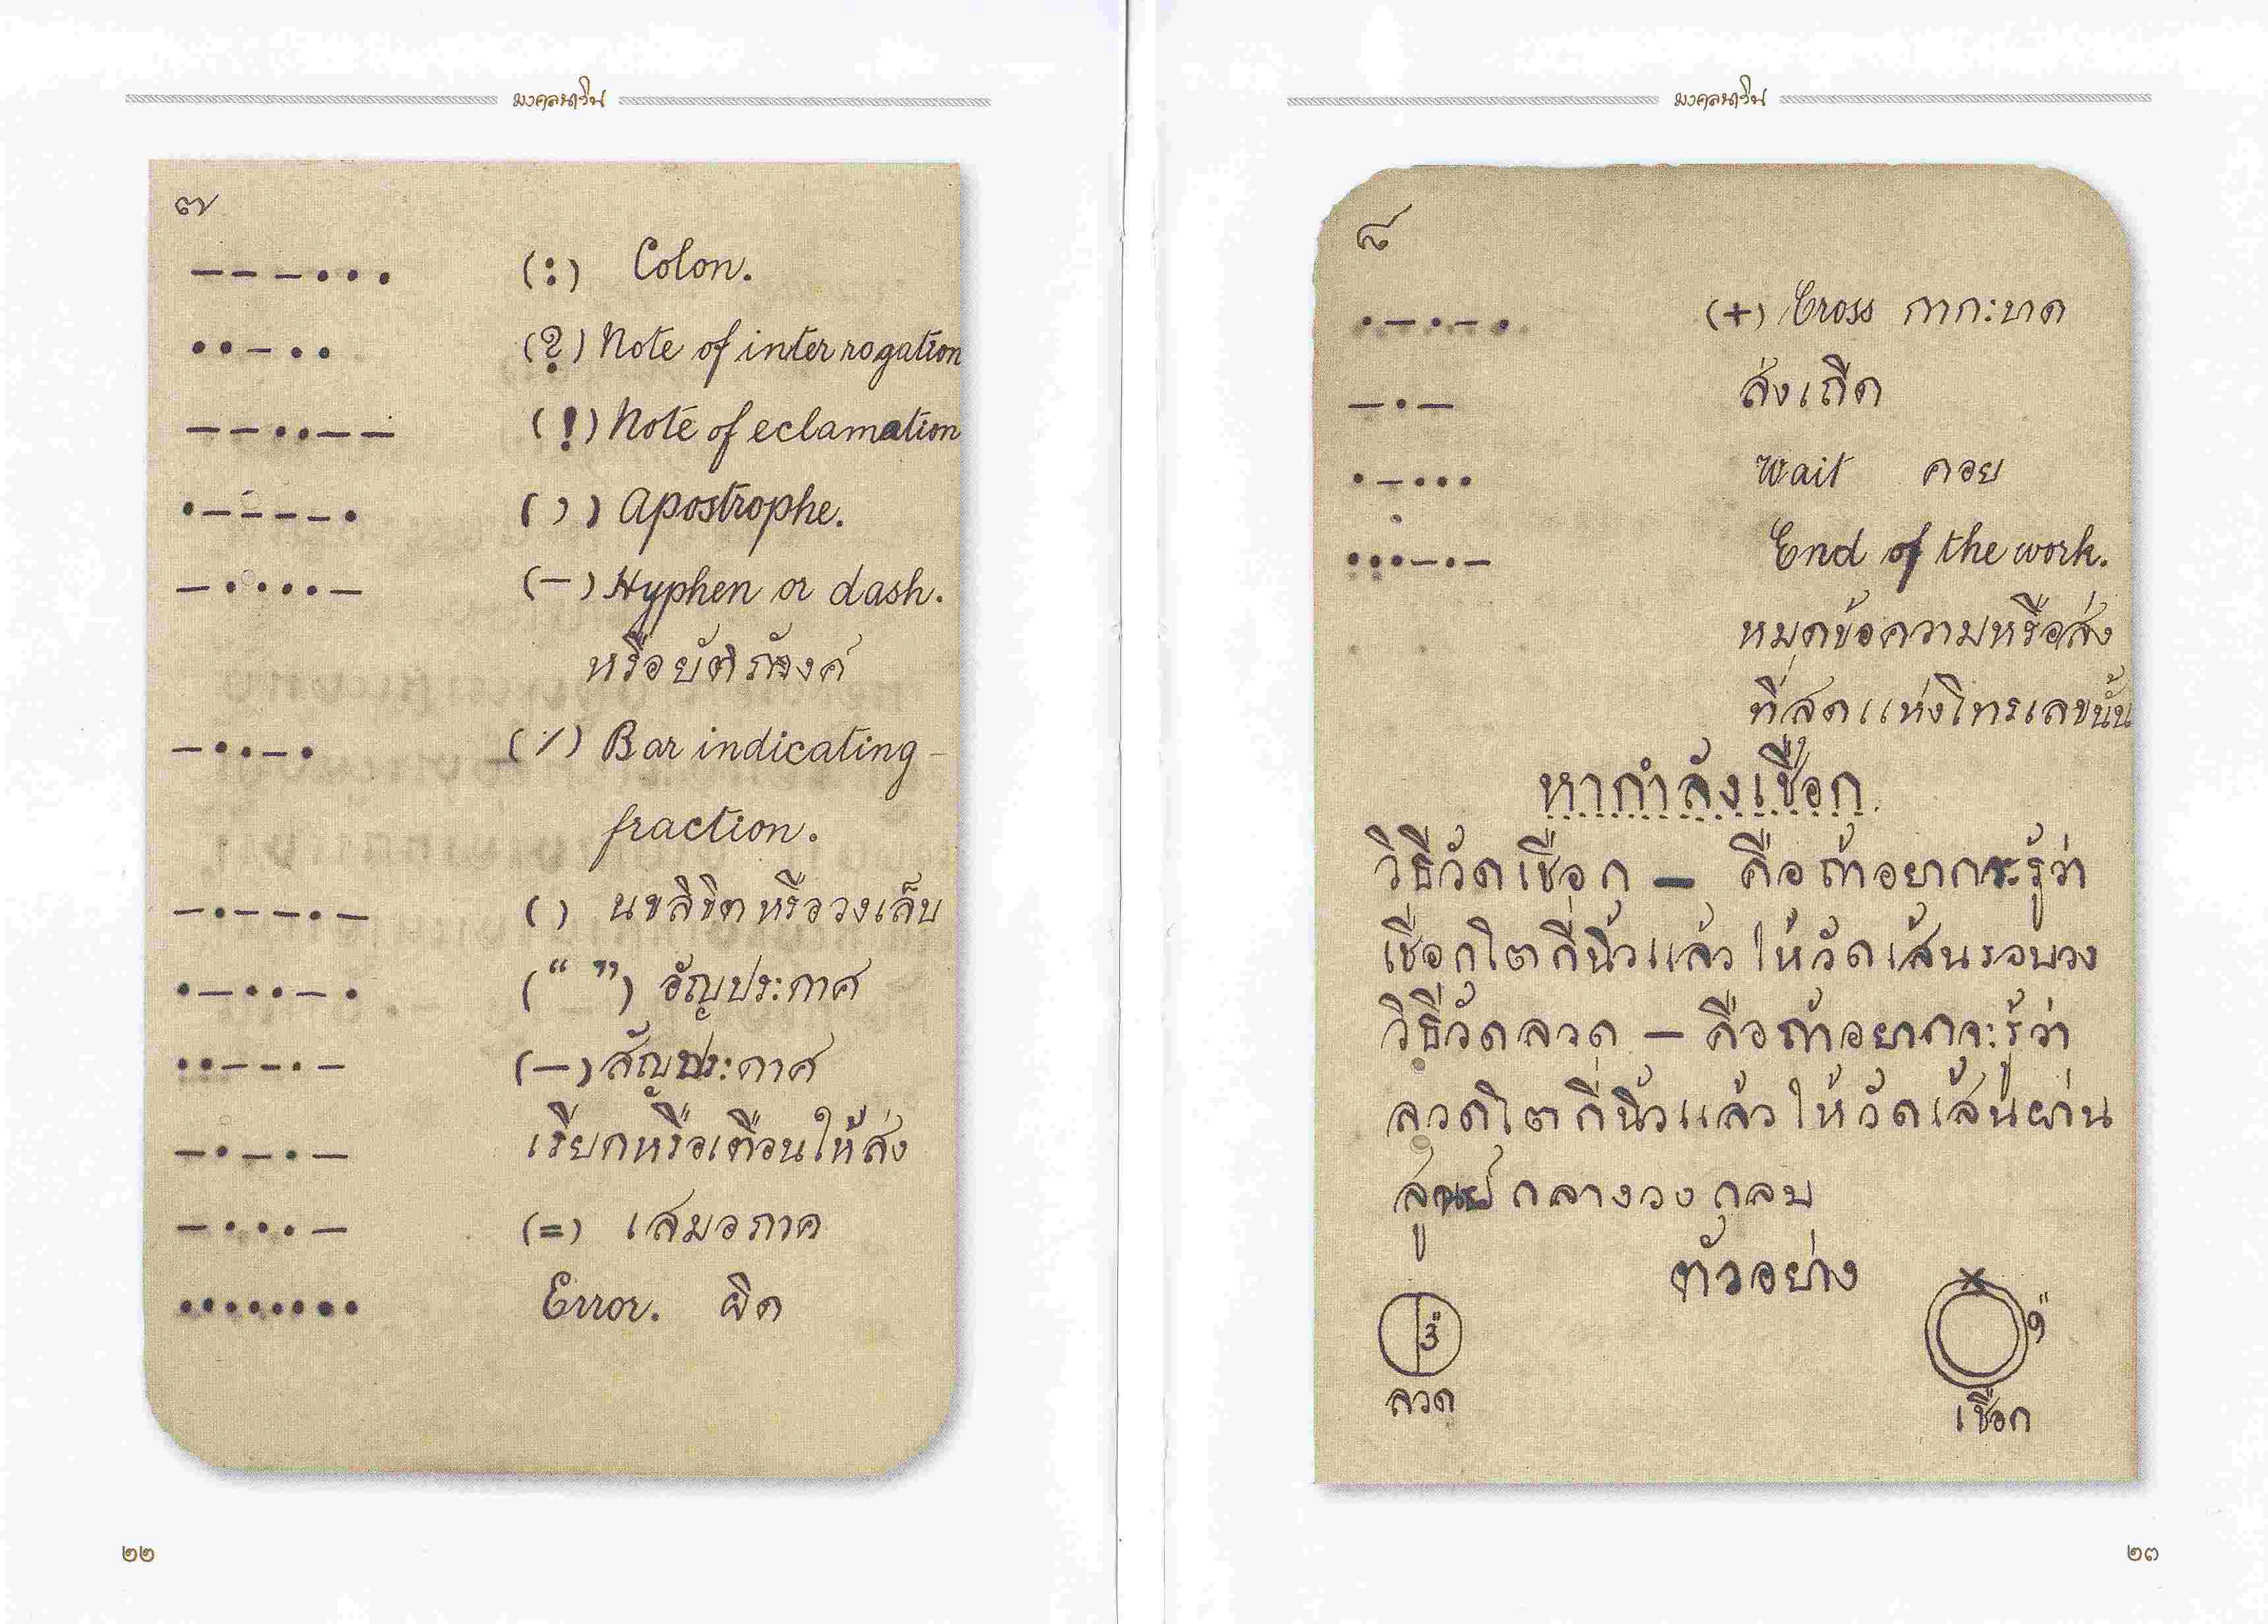 มงคลนาวิน
๗
— — — • • • (:) Colon.
• • — • • (?) Note of interrogation
— — • • — — (!) Note of eclamation
• — — — — • (') Apostrophe.
— • • • • — (—) Hyphen or dash.
หรือยัติภังค์
— • • — • (/) Bar indicating -
fraction.
— • — — • — ( ) นขลิขิตหรือวงเล็บ
• — • • — • (“ ”) อัญประกาศ
• • — — • — (—) สัญประกาศ
— • — • — เรียกหรือเตือนให้ส่ง
— • • • — (=) เสมอภาค
• • • • • • • • Error. ผิด
๒๒
มงคลนาวิน
๘
• — • — • (+) Cross กากะบาด
— • — ส่งเถิด
• — • • • Wait คอย
• • • — • — End of the work.
หมดข้อความหรือส่ง
ที่สุดแห่งโทรเลขนั้น
หากำลังเชือก.
วิธีวัดเชือก — คือถ้าอยากจะรู้ว่า
เชือกโตกี่นิ้วแล้ว ให้วัดเส้นรอบวง
วิธีวัดลวด — คือถ้าอยากจะรู้ว่า
ลวดโตกี่นิ้วแล้ว ให้วัดเส้นผ่าน
สูนย์กลางวงกลม
ตัวอย่าง
๓" ๑"
ลวด เชือก
๒๓